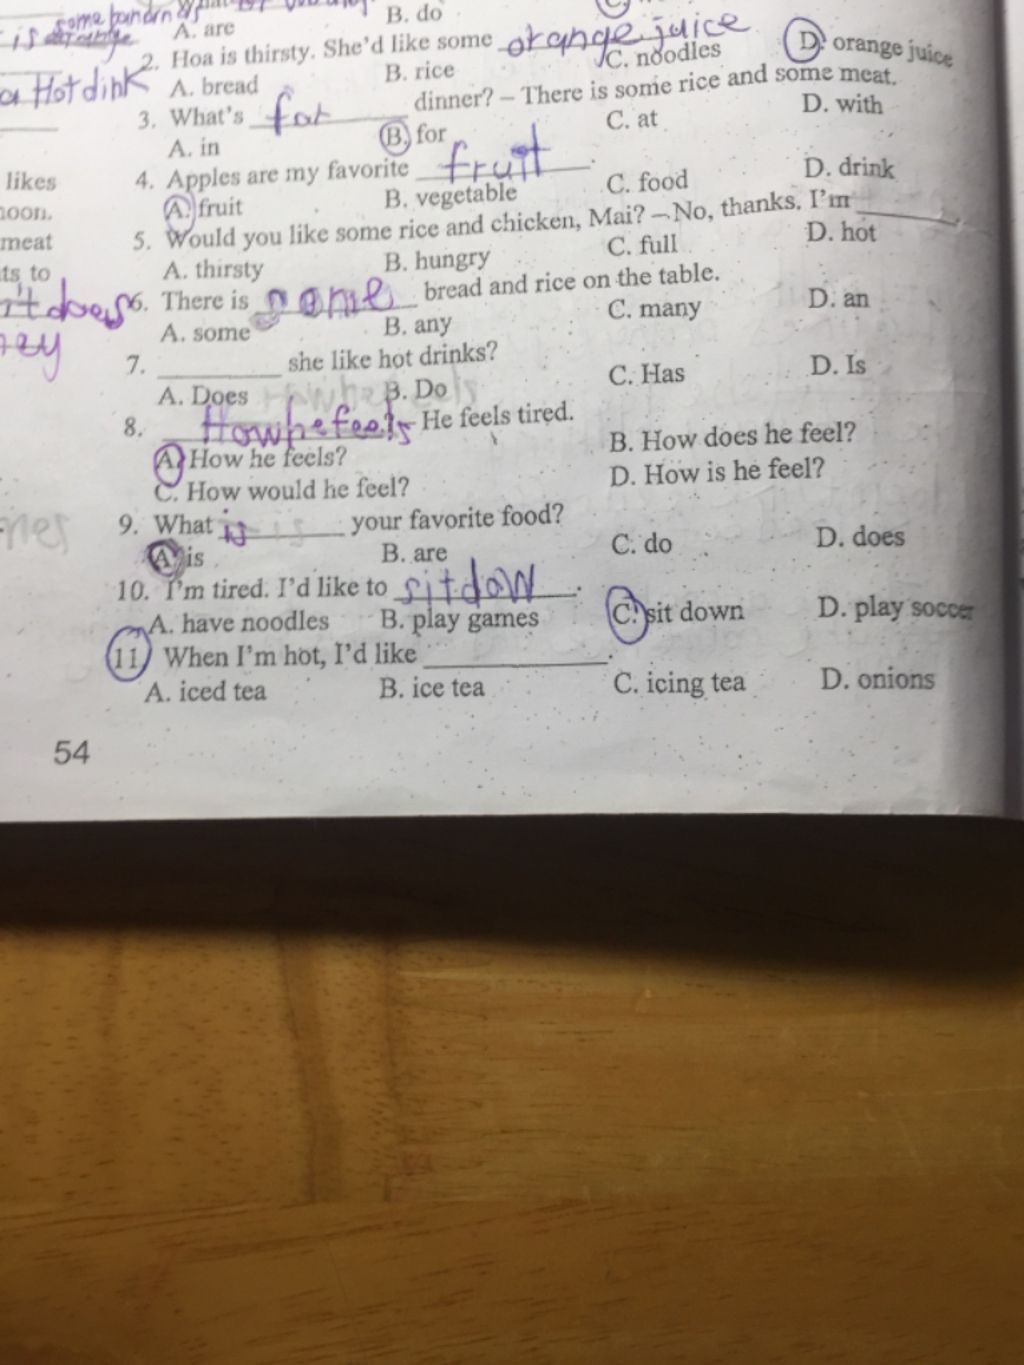 some
A. are
B. do
is
2. Hoa is thirsty. She'd like some orange juice
A. bread
B. rice
C. noodles
D. orange juice
a Hot dink
3. What's for dinner? – There is some rice and some meat.
A. in
B. for
C. at
D. with
likes
4. Apples are my favorite fruit.
A. fruit
B. vegetable
C. food
D. drink
noon.
5. Would you like some rice and chicken, Mai? – No, thanks. I'm
meat
A. thirsty
B. hungry
C. full
D. hot
ts to
it does
6. There is some bread and rice on the table.
A. some
B. any
C. many
D. an
hey
7. she like hot drinks?
A. Does
B. Do
C. Has
D. Is
8. How he feels He feels tired.
A. How he feels?
B. How does he feel?
C. How would he feel?
D. How is he feel?
9. What is your favorite food?
A. is
B. are
C. do
D. does
10. I'm tired. I'd like to sit dow.
A. have noodles
B. play games
C. sit down
D. play soccer
11. When I'm hot, I'd like .
A. iced tea
B. ice tea
C. icing tea
D. onions
54